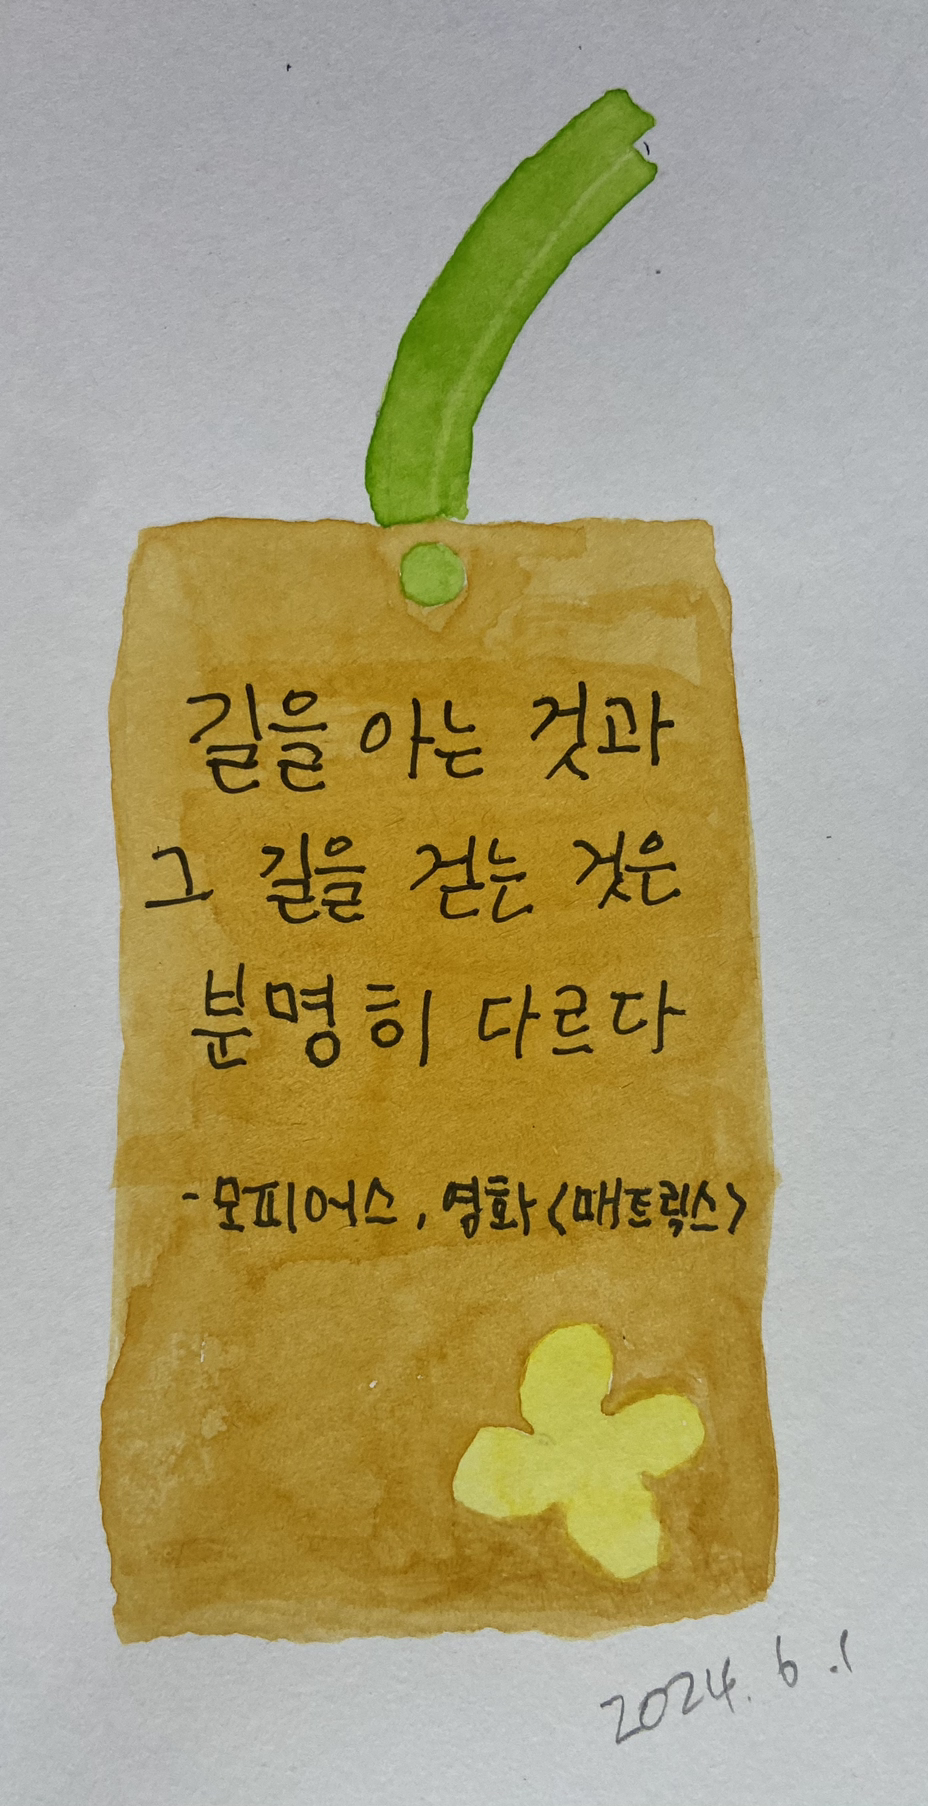 길을 아는 것과
그 길을 걷는 것은
분명히 다르다
-모피어스, 영화<매트릭스>
2024. 6.1